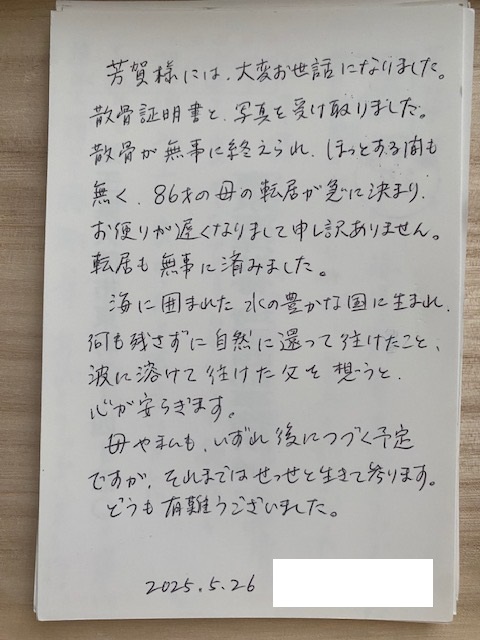 芳賀様には、大変お世話になりました。
散骨証明書と、写真を受け取りました。
散骨が無事に終えられ、ほっとする間も
無く、86才の母の転居が急に決まり、
お便りが遅くなりまして申し訳ありません。
転居も無事に済みました。
海に囲まれた水の豊かな国に生まれ、
何も残さずに自然に還って往けたこと、
波に溶けて往けた父を想うと、
心が安らぎます。
母や私も、いずれ後につづく予定
ですが、それまではせっせと生きて参ります。
どうも有難うございました。
2025.5.26